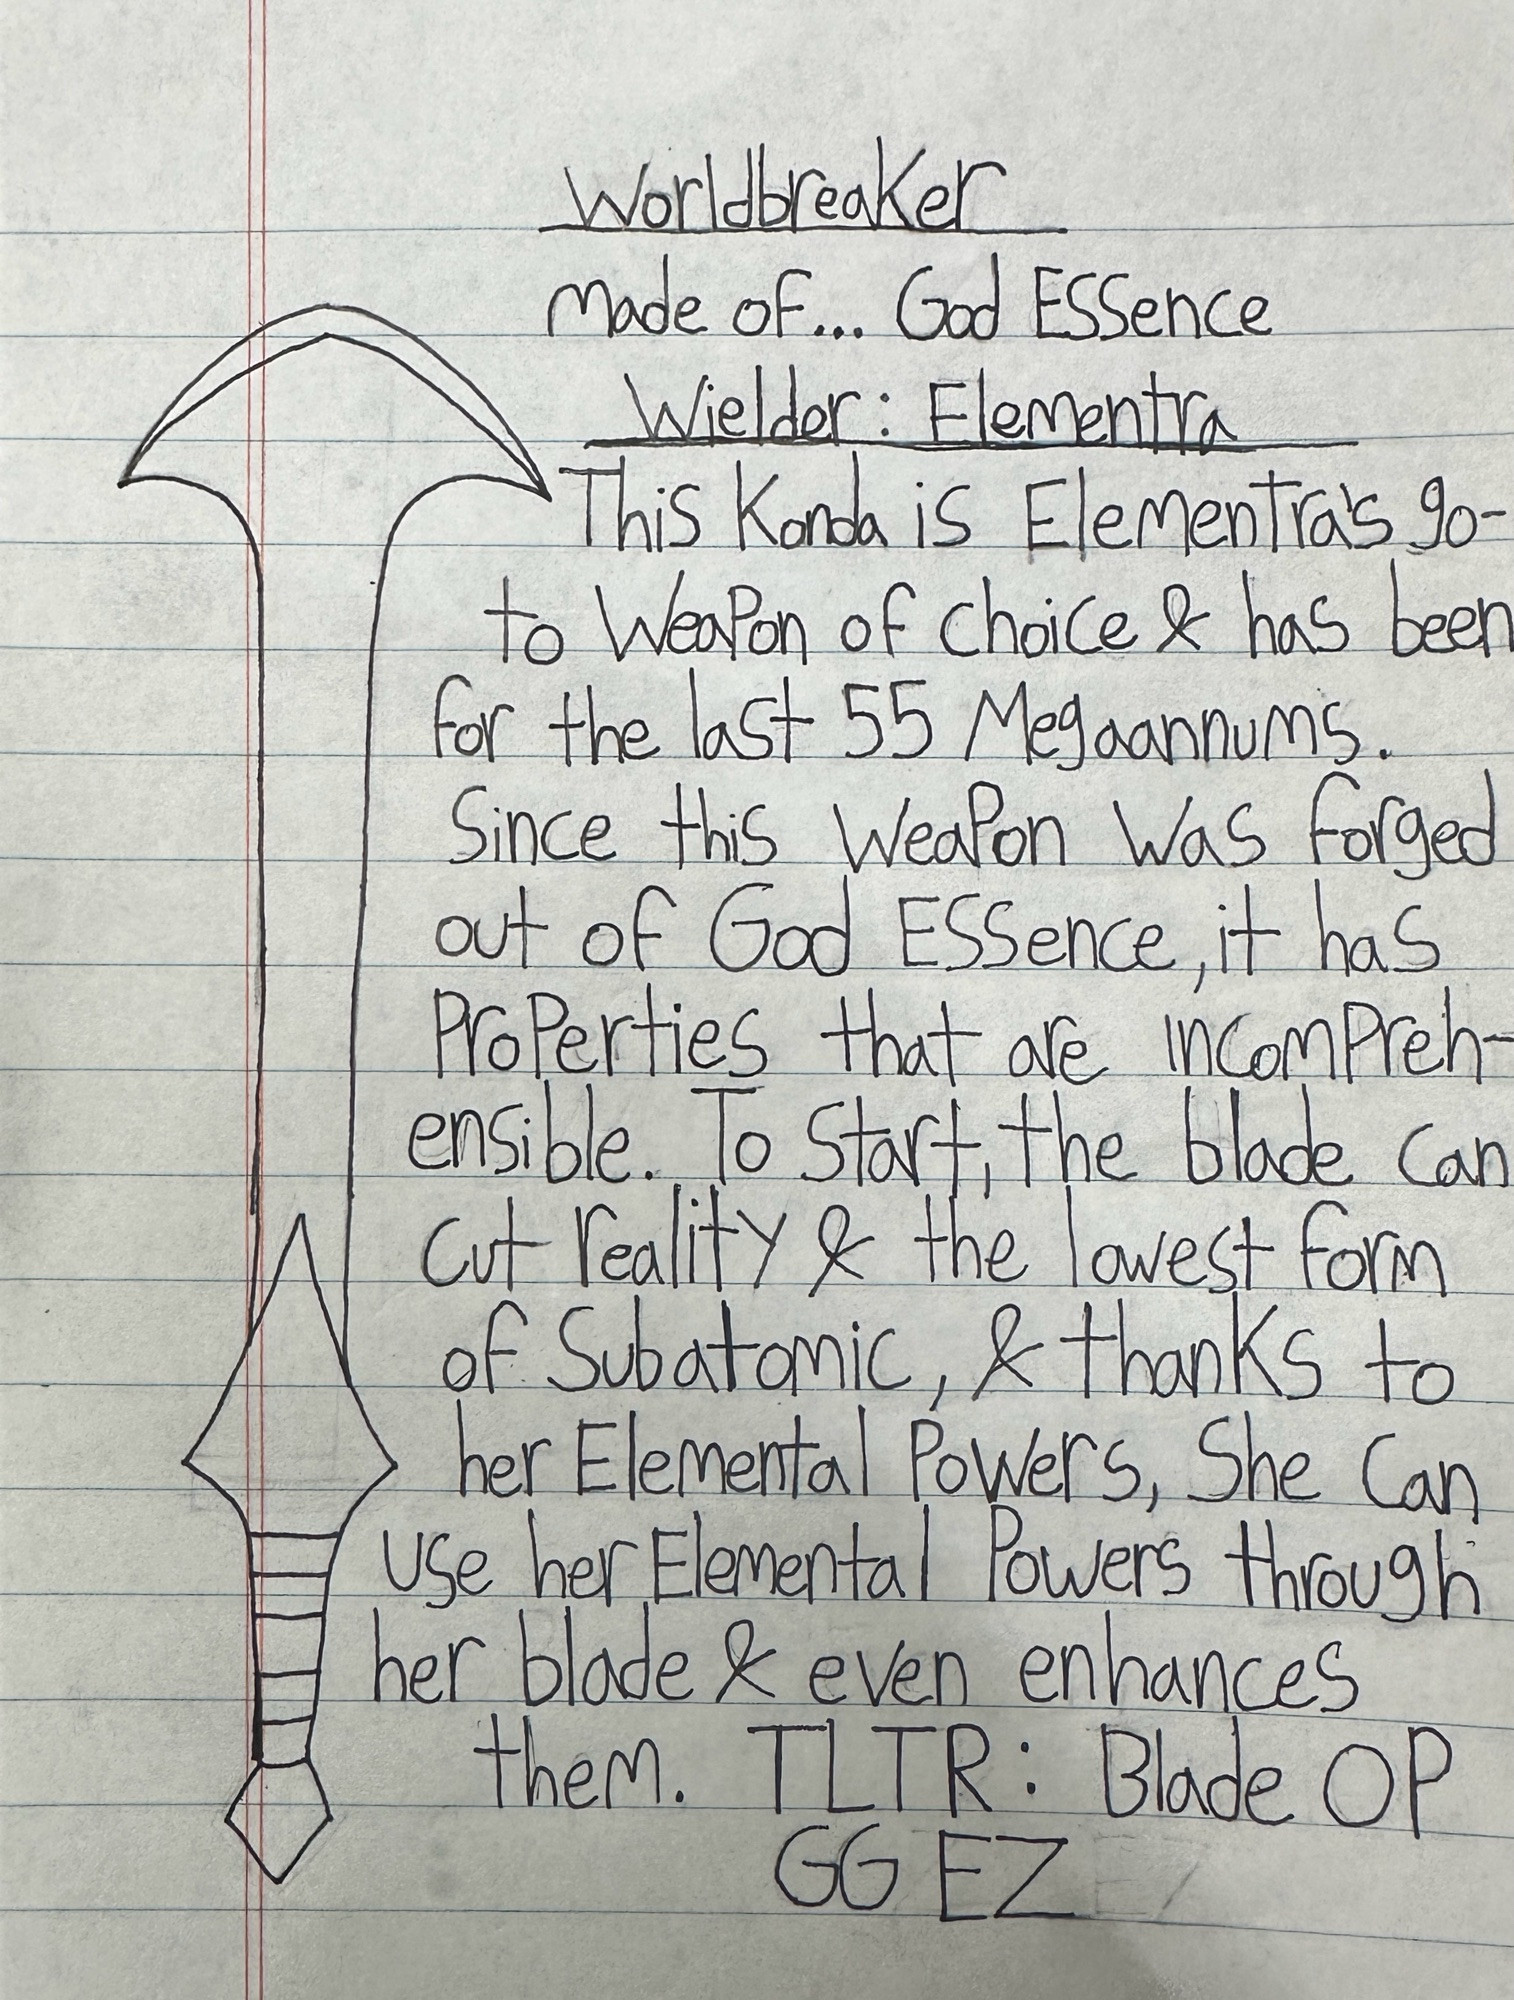 Worldbreaker
Made of... God Essence
Wielder: Elementra
This Konda is Elementra's go-
to Weapon of choice & has been
for the last 55 Megaannums.
Since this Weapon was forged
out of God Essence, it has
Properties that are incompreh-
ensible. To Start, the blade can
cut reality & the lowest form
of Subatomic, & thanks to
her Elemental Powers, She can
use her Elemental Powers through
her blade & even enhances
them. TLTR: Blade OP
GG EZ